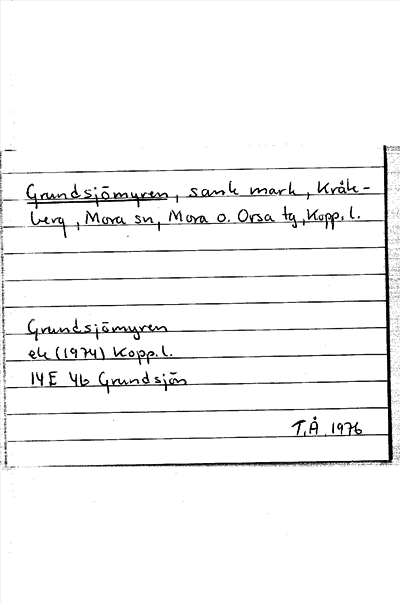 Grundsjömyren, sank mark, Kråk-
berg, Mora sn, Mora o. Orsa tg, Kopp. l.
Grundsjömyren
ek (1974) Kopp. l.
14E 4b Grundsjön
T.Å. 1976